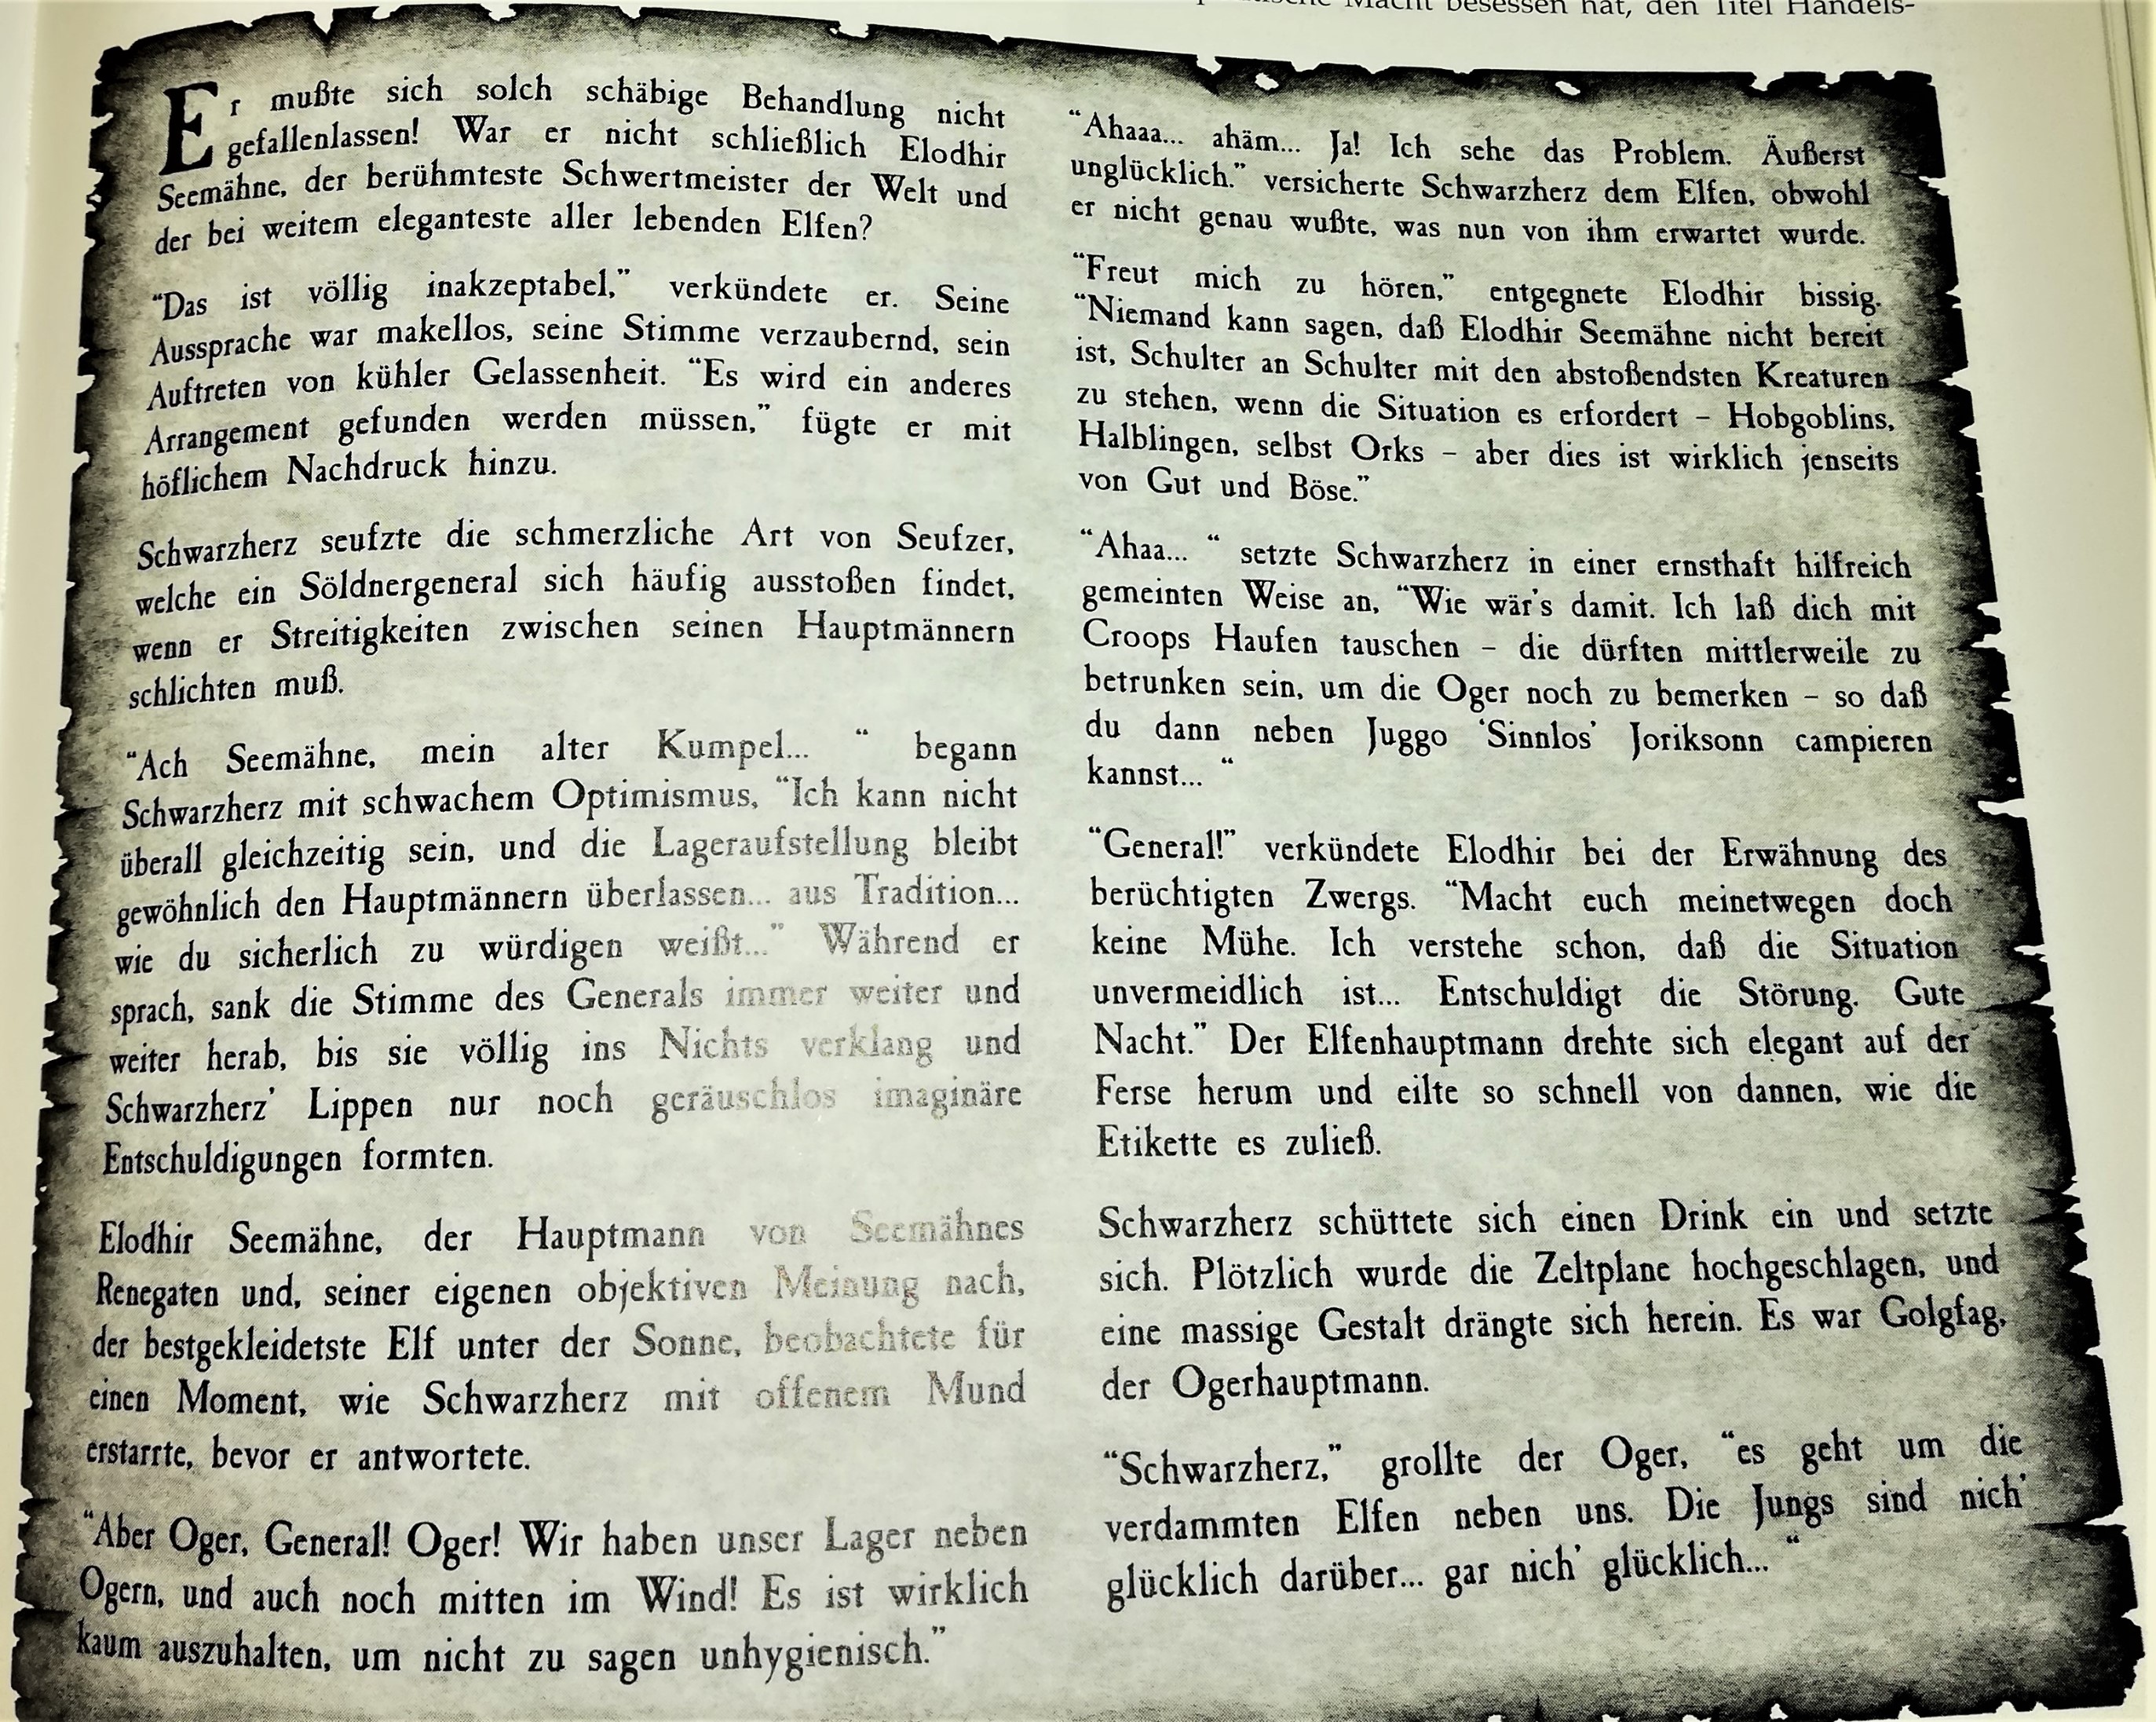 Macht besessen hat, den Titel Handels-
Er mußte sich solch schäbige Behandlung nicht
gefallenlassen! War er nicht schließlich Elodhir
Seemähne, der berühmteste Schwertmeister der Welt und
der bei weitem eleganteste aller lebenden Elfen?
“Das ist völlig inakzeptabel,” verkündete er. Seine
Aussprache war makellos, seine Stimme verzaubernd, sein
Auftreten von kühler Gelassenheit. “Es wird ein anderes
Arrangement gefunden werden müssen,” fügte er mit
höflichem Nachdruck hinzu.
Schwarzherz seufzte die schmerzliche Art von Seufzer,
welche ein Söldnergeneral sich häufig ausstoßen findet,
wenn er Streitigkeiten zwischen seinen Hauptmännern
schlichten muß.
“Ach Seemähne, mein alter Kumpel... “ begann
Schwarzherz mit schwachem Optimismus, “Ich kann nicht
überall gleichzeitig sein, und die Lageraufstellung bleibt
gewöhnlich den Hauptmännern überlassen... aus Tradition...
wie du sicherlich zu würdigen weißt...” Während er
sprach, sank die Stimme des Generals immer weiter und
weiter herab, bis sie völlig ins Nichts verklang und
Schwarzherz’ Lippen nur noch geräuschlos imaginäre
Entschuldigungen formten.
Elodhir Seemähne, der Hauptmann von Seemähnes
Renegaten und, seiner eigenen objektiven Meinung nach,
der bestgekleidetste Elf unter der Sonne, beobachtete für
einen Moment, wie Schwarzherz mit offenem Mund
erstarrte, bevor er antwortete.
“Aber Oger, General! Oger! Wir haben unser Lager neben
Ogern, und auch noch mitten im Wind! Es ist wirklich
kaum auszuhalten, um nicht zu sagen unhygienisch.”
“Ahaaa... ahäm... Ja! Ich sehe das Problem. Äußerst
unglücklich.” versicherte Schwarzherz dem Elfen, obwohl
er nicht genau wußte, was nun von ihm erwartet wurde.
“Freut mich zu hören,” entgegnete Elodhir bissig.
“Niemand kann sagen, daß Elodhir Seemähne nicht bereit
ist, Schulter an Schulter mit den abstoßendsten Kreaturen
zu stehen, wenn die Situation es erfordert – Hobgoblins,
Halblingen, selbst Orks – aber dies ist wirklich jenseits
von Gut und Böse.”
“Ahaa... “ setzte Schwarzherz in einer ernsthaft hilfreich
gemeinten Weise an, “Wie wär’s damit. Ich laß dich mit
Croops Haufen tauschen – die dürften mittlerweile zu
betrunken sein, um die Oger noch zu bemerken – so daß
du dann neben Juggo ‘Sinnlos’ Joriksonn campieren
kannst... “
“General!” verkündete Elodhir bei der Erwähnung des
berüchtigten Zwergs. “Macht euch meinetwegen doch
keine Mühe. Ich verstehe schon, daß die Situation
unvermeidlich ist... Entschuldigt die Störung. Gute
Nacht.” Der Elfenhauptmann drehte sich elegant auf der
Ferse herum und eilte so schnell von dannen, wie die
Etikette es zuließ.
Schwarzherz schüttete sich einen Drink ein und setzte
sich. Plötzlich wurde die Zeltplane hochgeschlagen, und
eine massige Gestalt drängte sich herein. Es war Golgfag,
der Ogerhauptmann.
“Schwarzherz,” grollte der Oger, “es geht um die
verdammten Elfen neben uns. Die Jungs sind nich’
glücklich darüber... gar nich’ glücklich... “